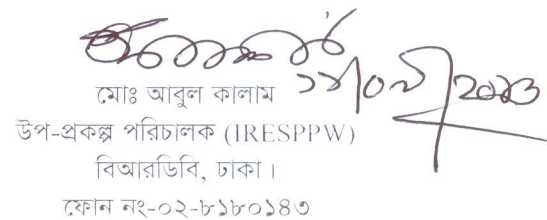 মোঃ আবুল কালাম
উপ-প্রকল্প পরিচালক (IRESPPW)
বিআরডিবি, ঢাকা।
ফোন নং-০২-৮১৮০১৪৩